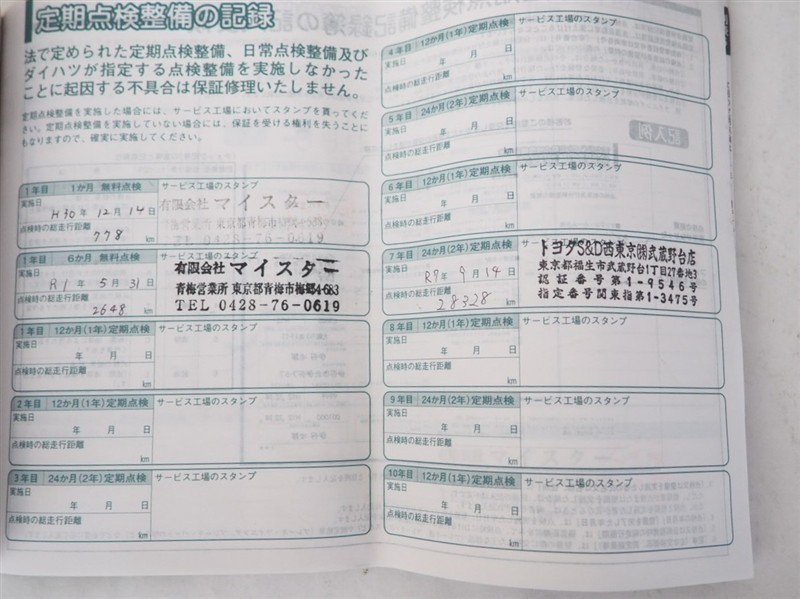 定期点検整備の記録
法で定められた定期点検整備、日常点検整備及び
ダイハツが指定する点検整備を実施しなかった
ことに起因する不具合は保証修理いたしません。
定期点検整備を実施した場合には、サービス工場においてスタンプを貰ってくだ
さい。定期点検整備を実施していない場合には、保証を受ける権利を失うことに
もなりますので、確実に実施してください。
1年目 1か月 無料点検 サービス工場のスタンプ
実施日
H30年 12月 14日
点検時の総走行距離
778 km
有限会社 マイスター
東京都青梅市
TEL 0428-76-0619
1年目 6か月 無料点検 サービス工場のスタンプ
実施日
R1年 5月 31日
点検時の総走行距離
2648 km
有限会社 マイスター
青梅営業所 東京都青梅市梅郷4-683
TEL 0428-76-0619
1年目 12か月(1年)定期点検 サービス工場のスタンプ
実施日
年 月 日
点検時の総走行距離
km
2年目 12か月(1年)定期点検 サービス工場のスタンプ
実施日
年 月 日
点検時の総走行距離
km
3年目 24か月(2年)定期点検 サービス工場のスタンプ
実施日
年 月 日
点検時の総走行距離
km
4年目 12か月(1年)定期点検 サービス工場のスタンプ
実施日
年 月 日
点検時の総走行距離
km
5年目 24か月(2年)定期点検 サービス工場のスタンプ
実施日
年 月 日
点検時の総走行距離
km
6年目 12か月(1年)定期点検 サービス工場のスタンプ
実施日
年 月 日
点検時の総走行距離
km
7年目 24か月(2年)定期点検 サービス工場のスタンプ
実施日
R7年 9月 14日
点検時の総走行距離
28328 km
トヨタS&D西東京㈱武蔵野台店
東京都福生市武蔵野台1丁目27番地3
認証番号第1-9546号
指定番号関東指第1-3475号
8年目 12か月(1年)定期点検 サービス工場のスタンプ
実施日
年 月 日
点検時の総走行距離
km
9年目 24か月(2年)定期点検 サービス工場のスタンプ
実施日
年 月 日
点検時の総走行距離
km
10年目 12か月(1年)定期点検 サービス工場のスタンプ
実施日
年 月 日
点検時の総走行距離
km